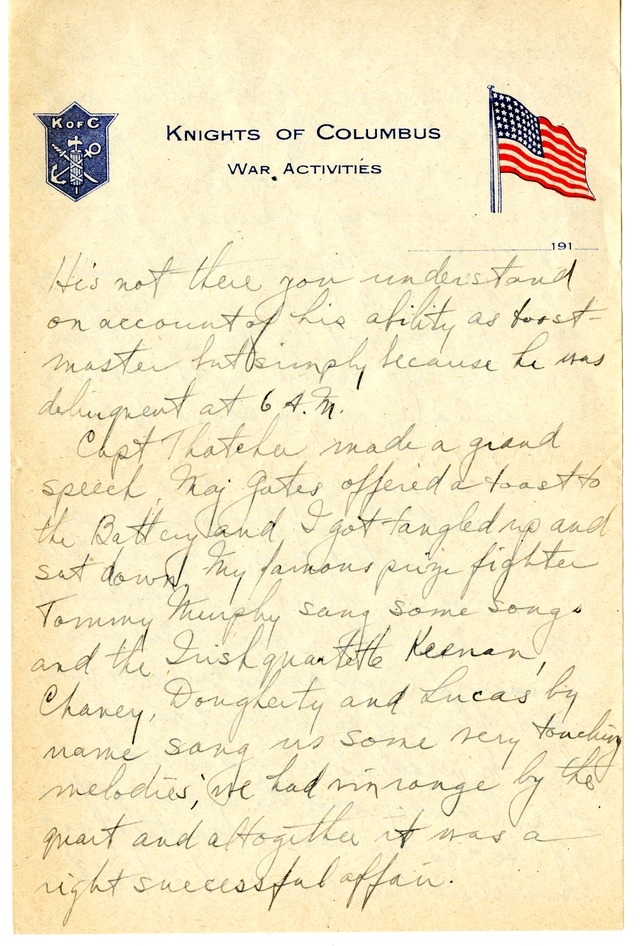 K OF C
KNIGHTS OF COLUMBUS
WAR ACTIVITIES
191
His not there you understand
on account of his ability as toast-
master but simply because he was
delinquent at 6 A.M.
Capt Thatcher made a grand
speech, Maj Gates offered a toast to
the Battery and I got tangled up and
sat down. My famous prize fighter
Tommy Murphy sang some songs
and the Irish quartette Keenan,
Chaney, Dougherty and Lucas by
name sang us some very touching
melodies; we had vin range by the
quart and altogether it was a
right successful affair.